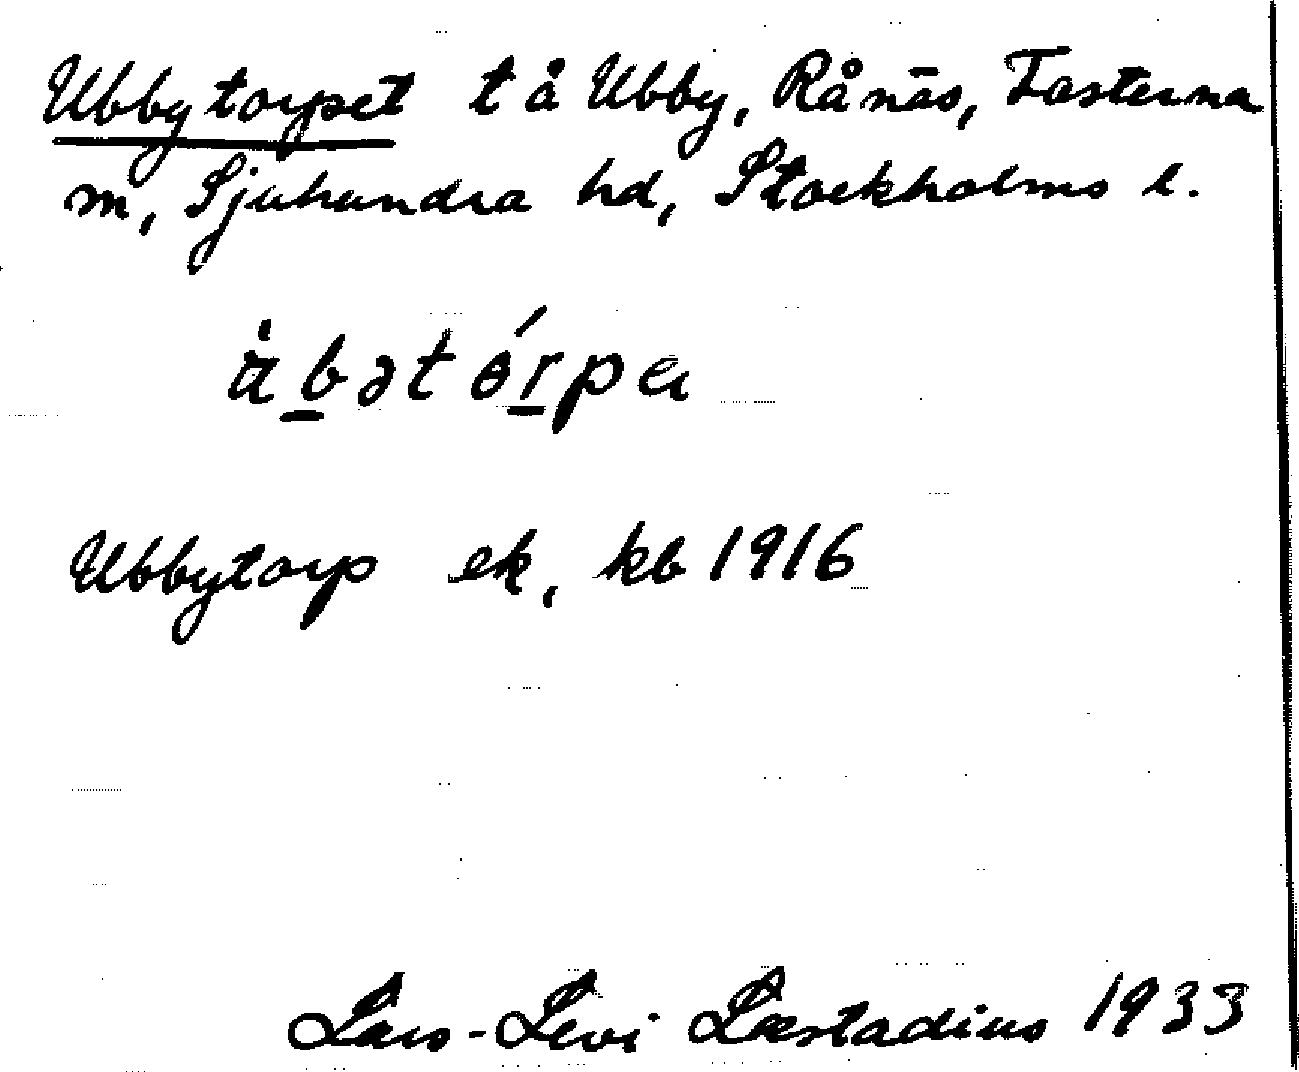 Ubbytorpet t å Ubby, Rånäs, Fasterna
m, Sjuhundra hd, Stockholms l.
Ubbytorp ek, kb 1916
Lars-Levi Læstadius 1933